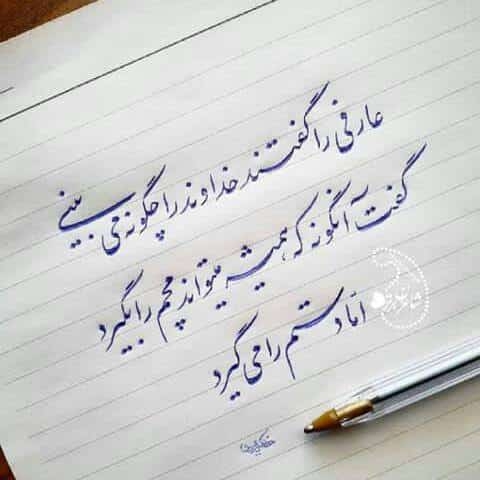 عارفی را گفتند خداوند را چگونه می بینی
گفت آنگونه که همیشه میتواند مچم را بگیرد
اما دستم را می گیرد